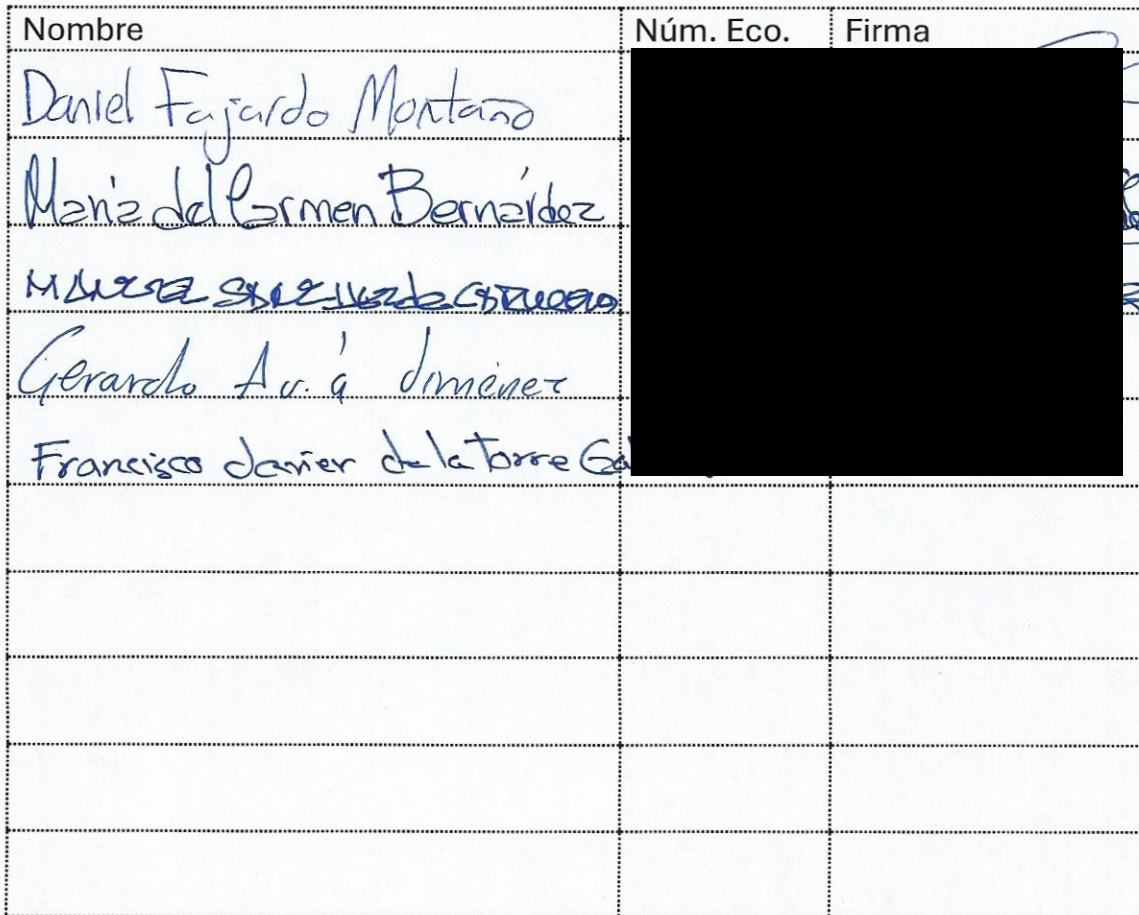 Nombre Núm. Eco. Firma
Daniel Fajardo Montaño
María del Carmen Bernárdez
de
Gerardo Jiménez
Francisco Javier de la Torre